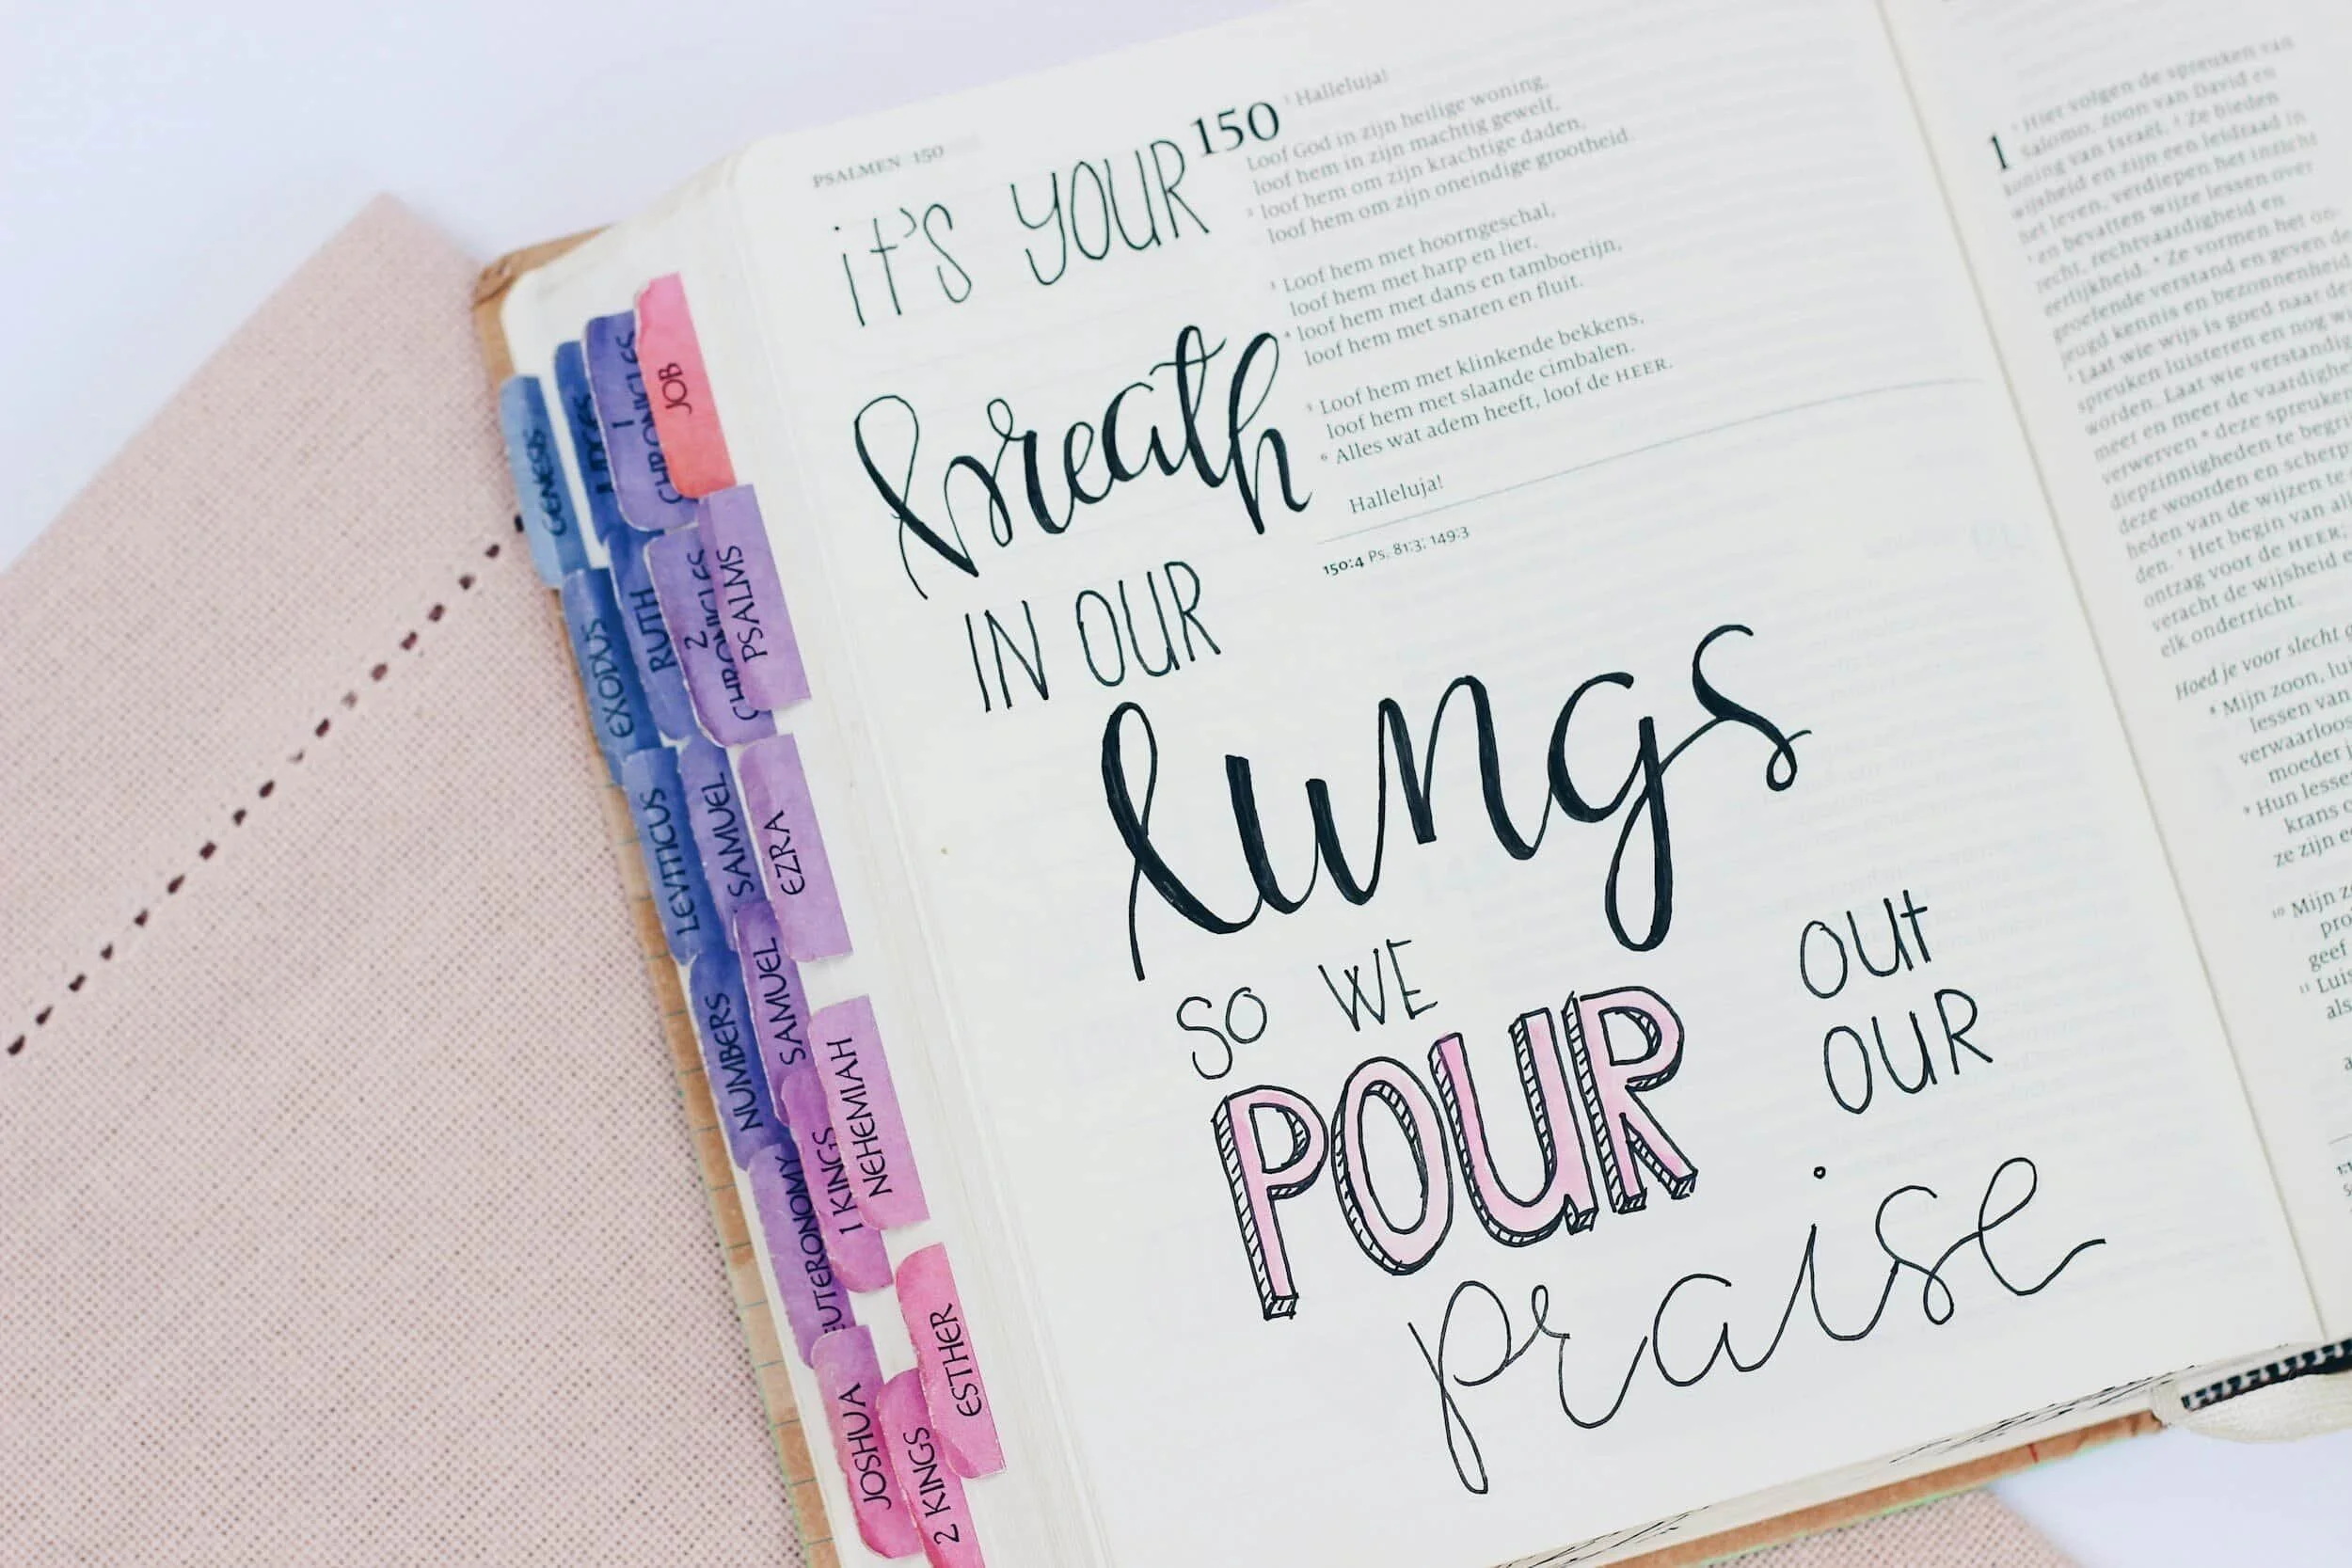 GENESIS
JUDGES
1
CHRONICLES
JOB
EXODUS
RUTH
2
CHRONICLES
PSALMS
LEVITICUS
SAMUEL
EZRA
NUMBERS
SAMUEL
NEHEMIAH
EUTERONOMY
1 KINGS
ESTHER
JOSHUA
2 KINGS
PSALMEN 150
it's YOUR
breath
IN OUR
lungs
SO WE
POUR
OUt
OUR
praise
150
1 Halleluja!
Loof God in zijn heilige woning,
loof hem in zijn machtig gewelf,
2 loof hem om zijn krachtige daden,
loof hem om zijn oneindige grootheid.
3 Loof hem met hoorngeschal,
loof hem met harp en lier,
4 loof hem met dans en tamboerijn,
loof hem met snaren en fluit.
5 Loof hem met klinkende bekkens,
loof hem met slaande cimbalen.
6 Alles wat adem heeft, loof de HEER.
Halleluja!
150:4 Ps. 81:3; 149:3
1
1 Hier volgen de spreuken van
Salomo, zoon van David en
koning van Israël. 2 Ze bieden
wijsheid en zijn een leidraad in
het leven, verdiepen het inzicht
3 en bevatten wijze lessen over
recht, rechtvaardigheid en
eerlijkheid. 4 Ze vormen het on-
geoefende verstand en geven de
jeugd kennis en bezonnenheid.
5 Laat wie wijs is goed naar de
spreuken luisteren en nog w
worden. Laat wie verstandig
meer en meer de vaardighe
verwerven 6 deze spreuken
diepzinnigheden te begri
deze woorden en scherp
heden van de wijzen te
den. 7 Het begin van al
ontzag voor de HEER,
veracht de wijsheid e
elk onderricht.
Hoed je voor slecht
8 Mijn zoon, lui
lessen van
verwaarloo
moeder
9 Hun lesse
krans
ze zijn e
10 Mijn z
geef
11
als